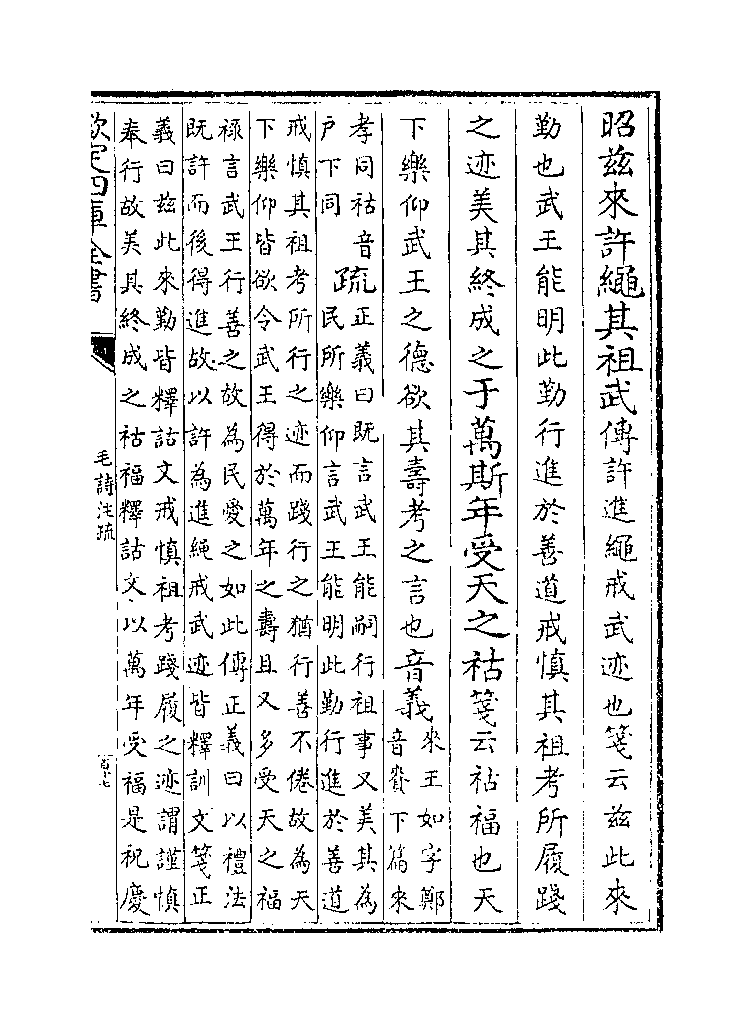 昭兹來許繩其祖武傳許進繩戒武迹也箋云兹此來
勤也武王能明此勤行進於善道戒慎其祖考所履踐
之迹美其終成之于萬斯年受天之祜箋云祜福也天
下樂仰武王之德欲其壽考之言也音義來王如字鄭
音賚下篇來
孝同祜音
户下同
疏正義曰既言武王能嗣行祖事又美其為
民所樂仰言武王能明此勤行進於善道
戒慎其祖考所行之迹而踐行之猶行善不倦故為天
下樂仰皆欲令武王得於萬年之壽且又多受天之福
祿言武王行善之故為民愛之如此傳正義曰以禮法
既許而後得進故以許為進繩戒武迹皆釋訓文箋正
義曰兹此來勤皆釋詁文戒慎祖考踐履之迹謂謹慎
奉行故美其終成之祜福釋詁文以萬年受福是祝慶
欽定四庫全書
毛詩注疏